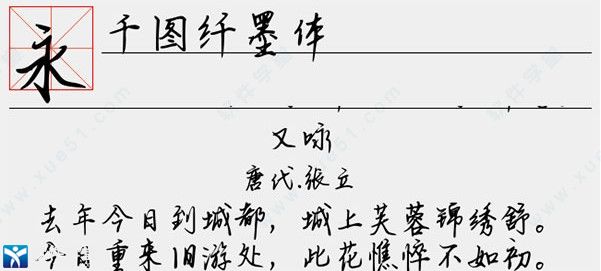 永
千图纤墨体
又咏
唐代.张立
去年今日到城都，城上芙蓉锦绣舒。
今日重来旧游处，此花憔悴不如初。
软件学堂
www.xue51.com